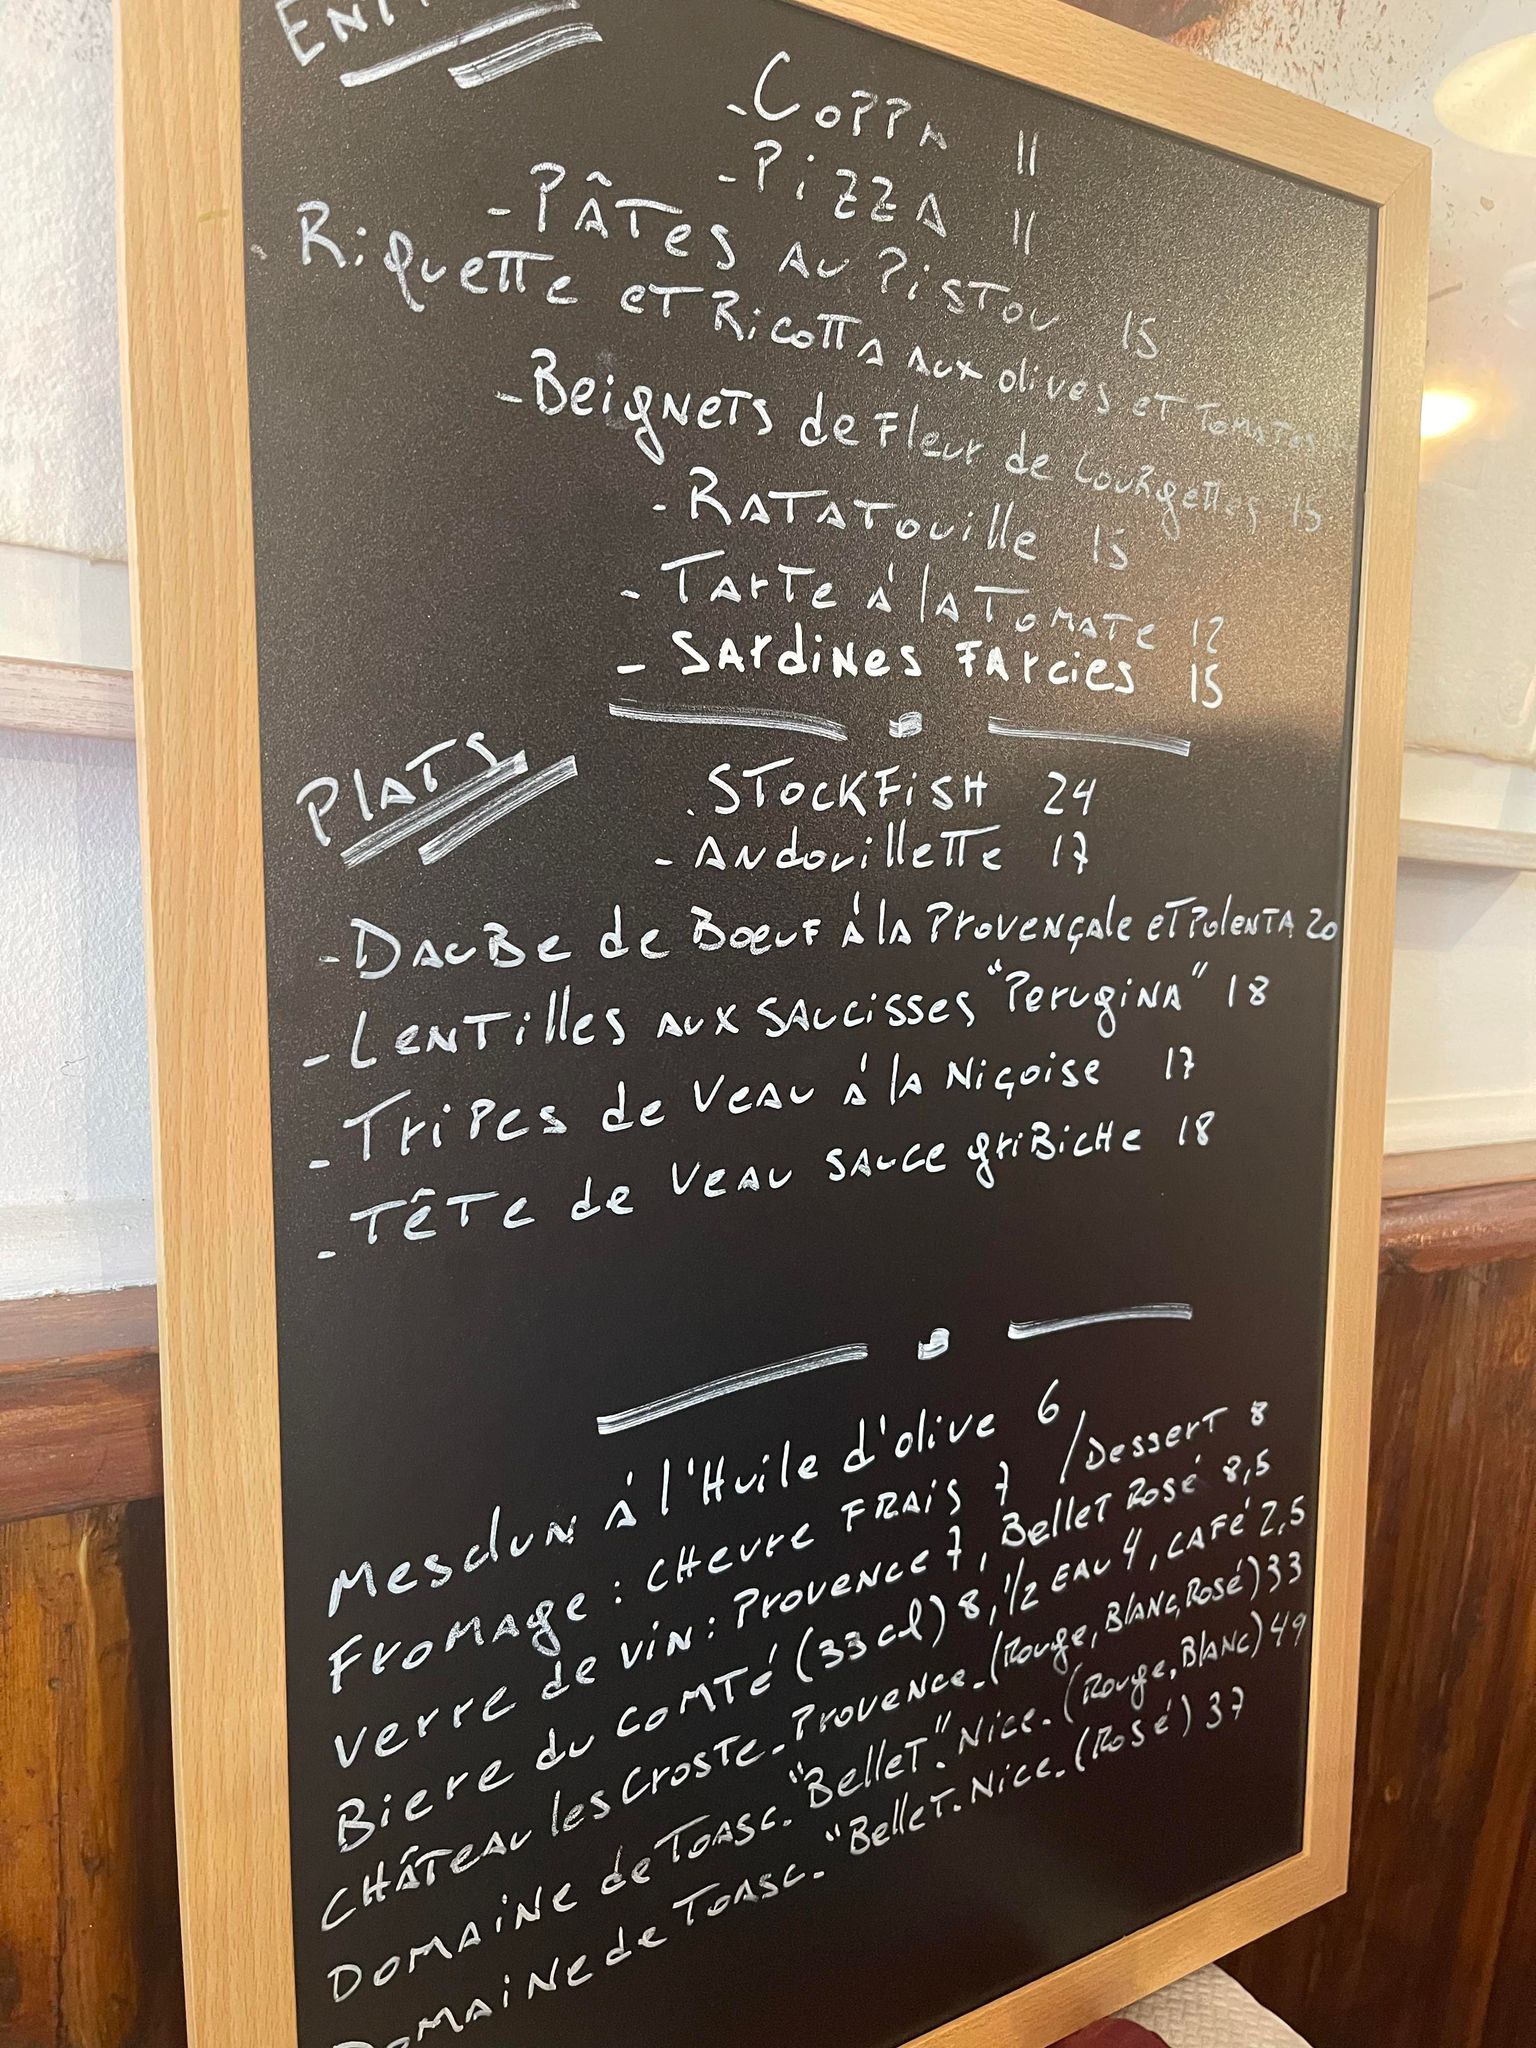 - Coppa 11
- Pizza 11
- Pâtes au Pistou 15
- Riquette et Ricotta aux olives et Tomates
- Beignets de Fleur de Courgettes 15
- Ratatouille 15
- Tarte à la Tomate 12
- Sardines Farcies 15
Plats
. Stockfish 24
- Andouillette 17
- Daube de Boeuf à la Provençale et Polenta 20
- Lentilles aux saucisses "Perugina" 18
- Tripes de Veau à la Niçoise 17
- Tête de Veau sauce gribiche 18
Mesclun à l'Huile d'olive 6
Fromage : chevre Frais 7 / Dessert 8
verre de vin : Provence 7, Bellet Rosé 8,5
Biere du comté (33 cl) 8, 1/2 Eau 4, café 2,5
Château les Croste - Provence - (Rouge, Blanc, Rosé) 33
Domaine de Toasc - "Bellet" - Nice - (Rouge, Blanc) 49
Domaine de Toasc - "Bellet - Nice - (Rosé) 37